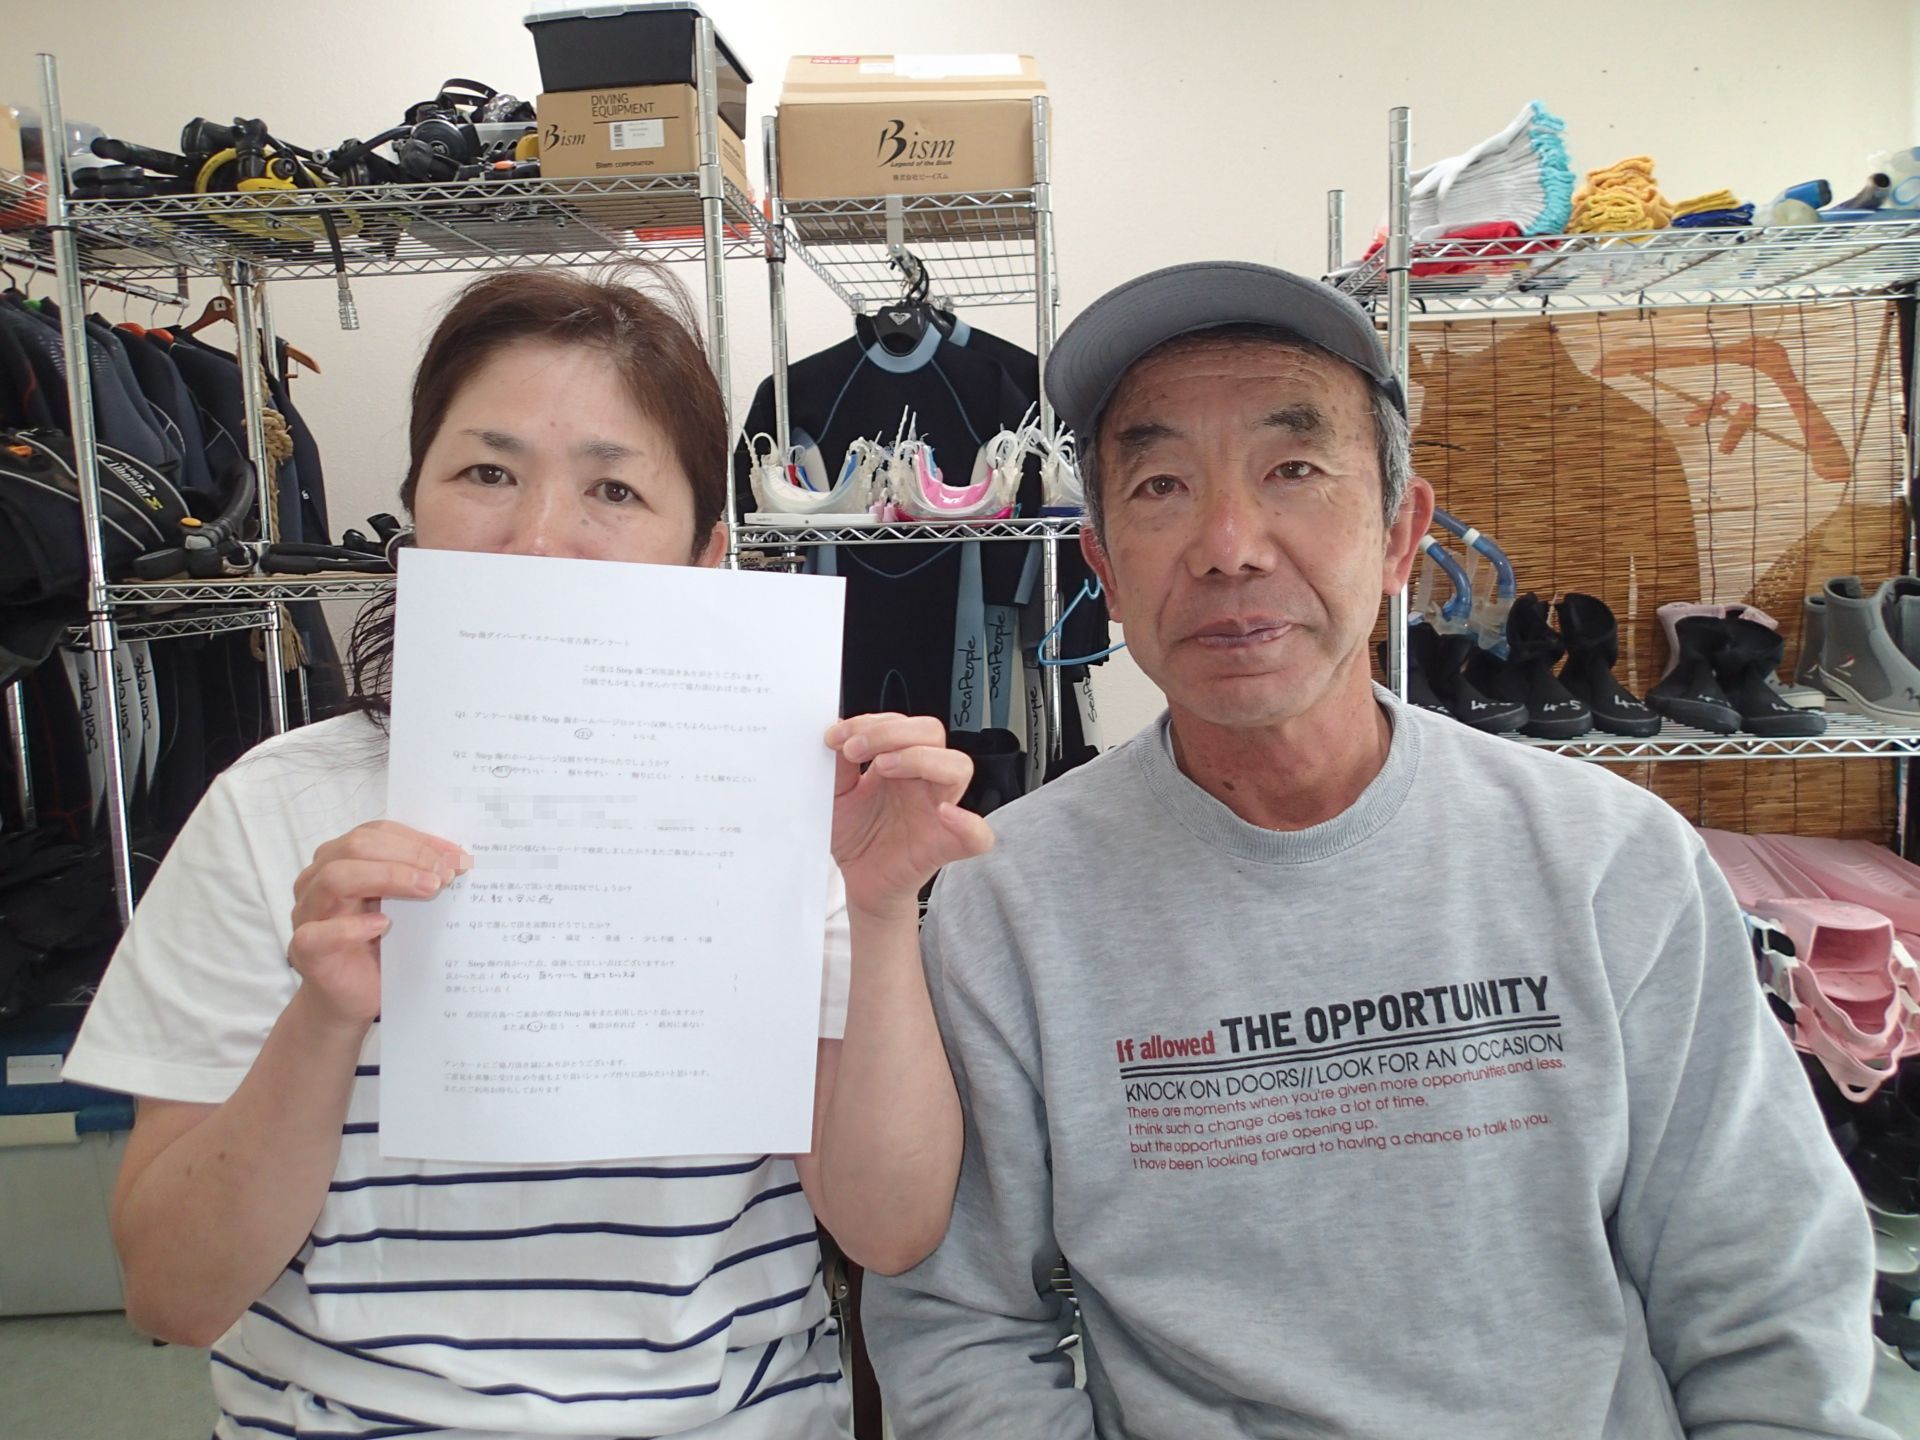 DIVING
EQUIPMENT
Bism
Bism CORPORATION
Bism
Legend of the Bism
株式会社ビーイズム
SeaPeople
SeaPeople
SeaPeople
SeaPeople
SeaPeople
4-5
Step海ダイバーズ・スクール宮古島アンケート
この度はStep海ご利用頂きありがとうございます。
白紙でもかましませんのでご協力頂ければと思います。
Q1 アンケート結果を Step 海ホームページ口コミへ反映してもよろしいでしょうか？
はい ・ いいえ
Q2 Step海のホームページは解りやすかったでしょうか？
とても解りやすいい ・ 解りやすい ・ 解りにくい ・ とても解りにくい
・ その他
Step海はどの様なキーワードで検索しましたか？またご参加メニューは？
Q5 Step海を選んで頂いた理由は何でしょうか？
( 少人数と安心感 )
Q6 Q5で選んで頂き実際はどうでしたか？
とても満足 ・ 満足 ・ 普通 ・ 少し不満 ・ 不満
Q7 Step海の良かった点、改善してほしい点はございますか？
良かった点 ( ゆっくり 落ちついて 進めてもらえる )
改善してしい点 ( )
Q8 次回宮古島へご来島の際はStep海をまた利用したいと思いますか？
また来たいと思う ・ 機会が有れば ・ 絶対に来ない
アンケートにご協力頂き誠にありがとうございます。
ご意見を真摯に受け止め今後もより良いショップ作りに励みたいと思います。
またのご利用お待ちしております
If allowed THE OPPORTUNITY
KNOCK ON DOORS//LOOK FOR AN OCCASION
There are moments when you're given more opportunities and less.
I think such a change does take a lot of time,
but the opportunities are opening up.
I have been looking forward to having a chance to talk to you.